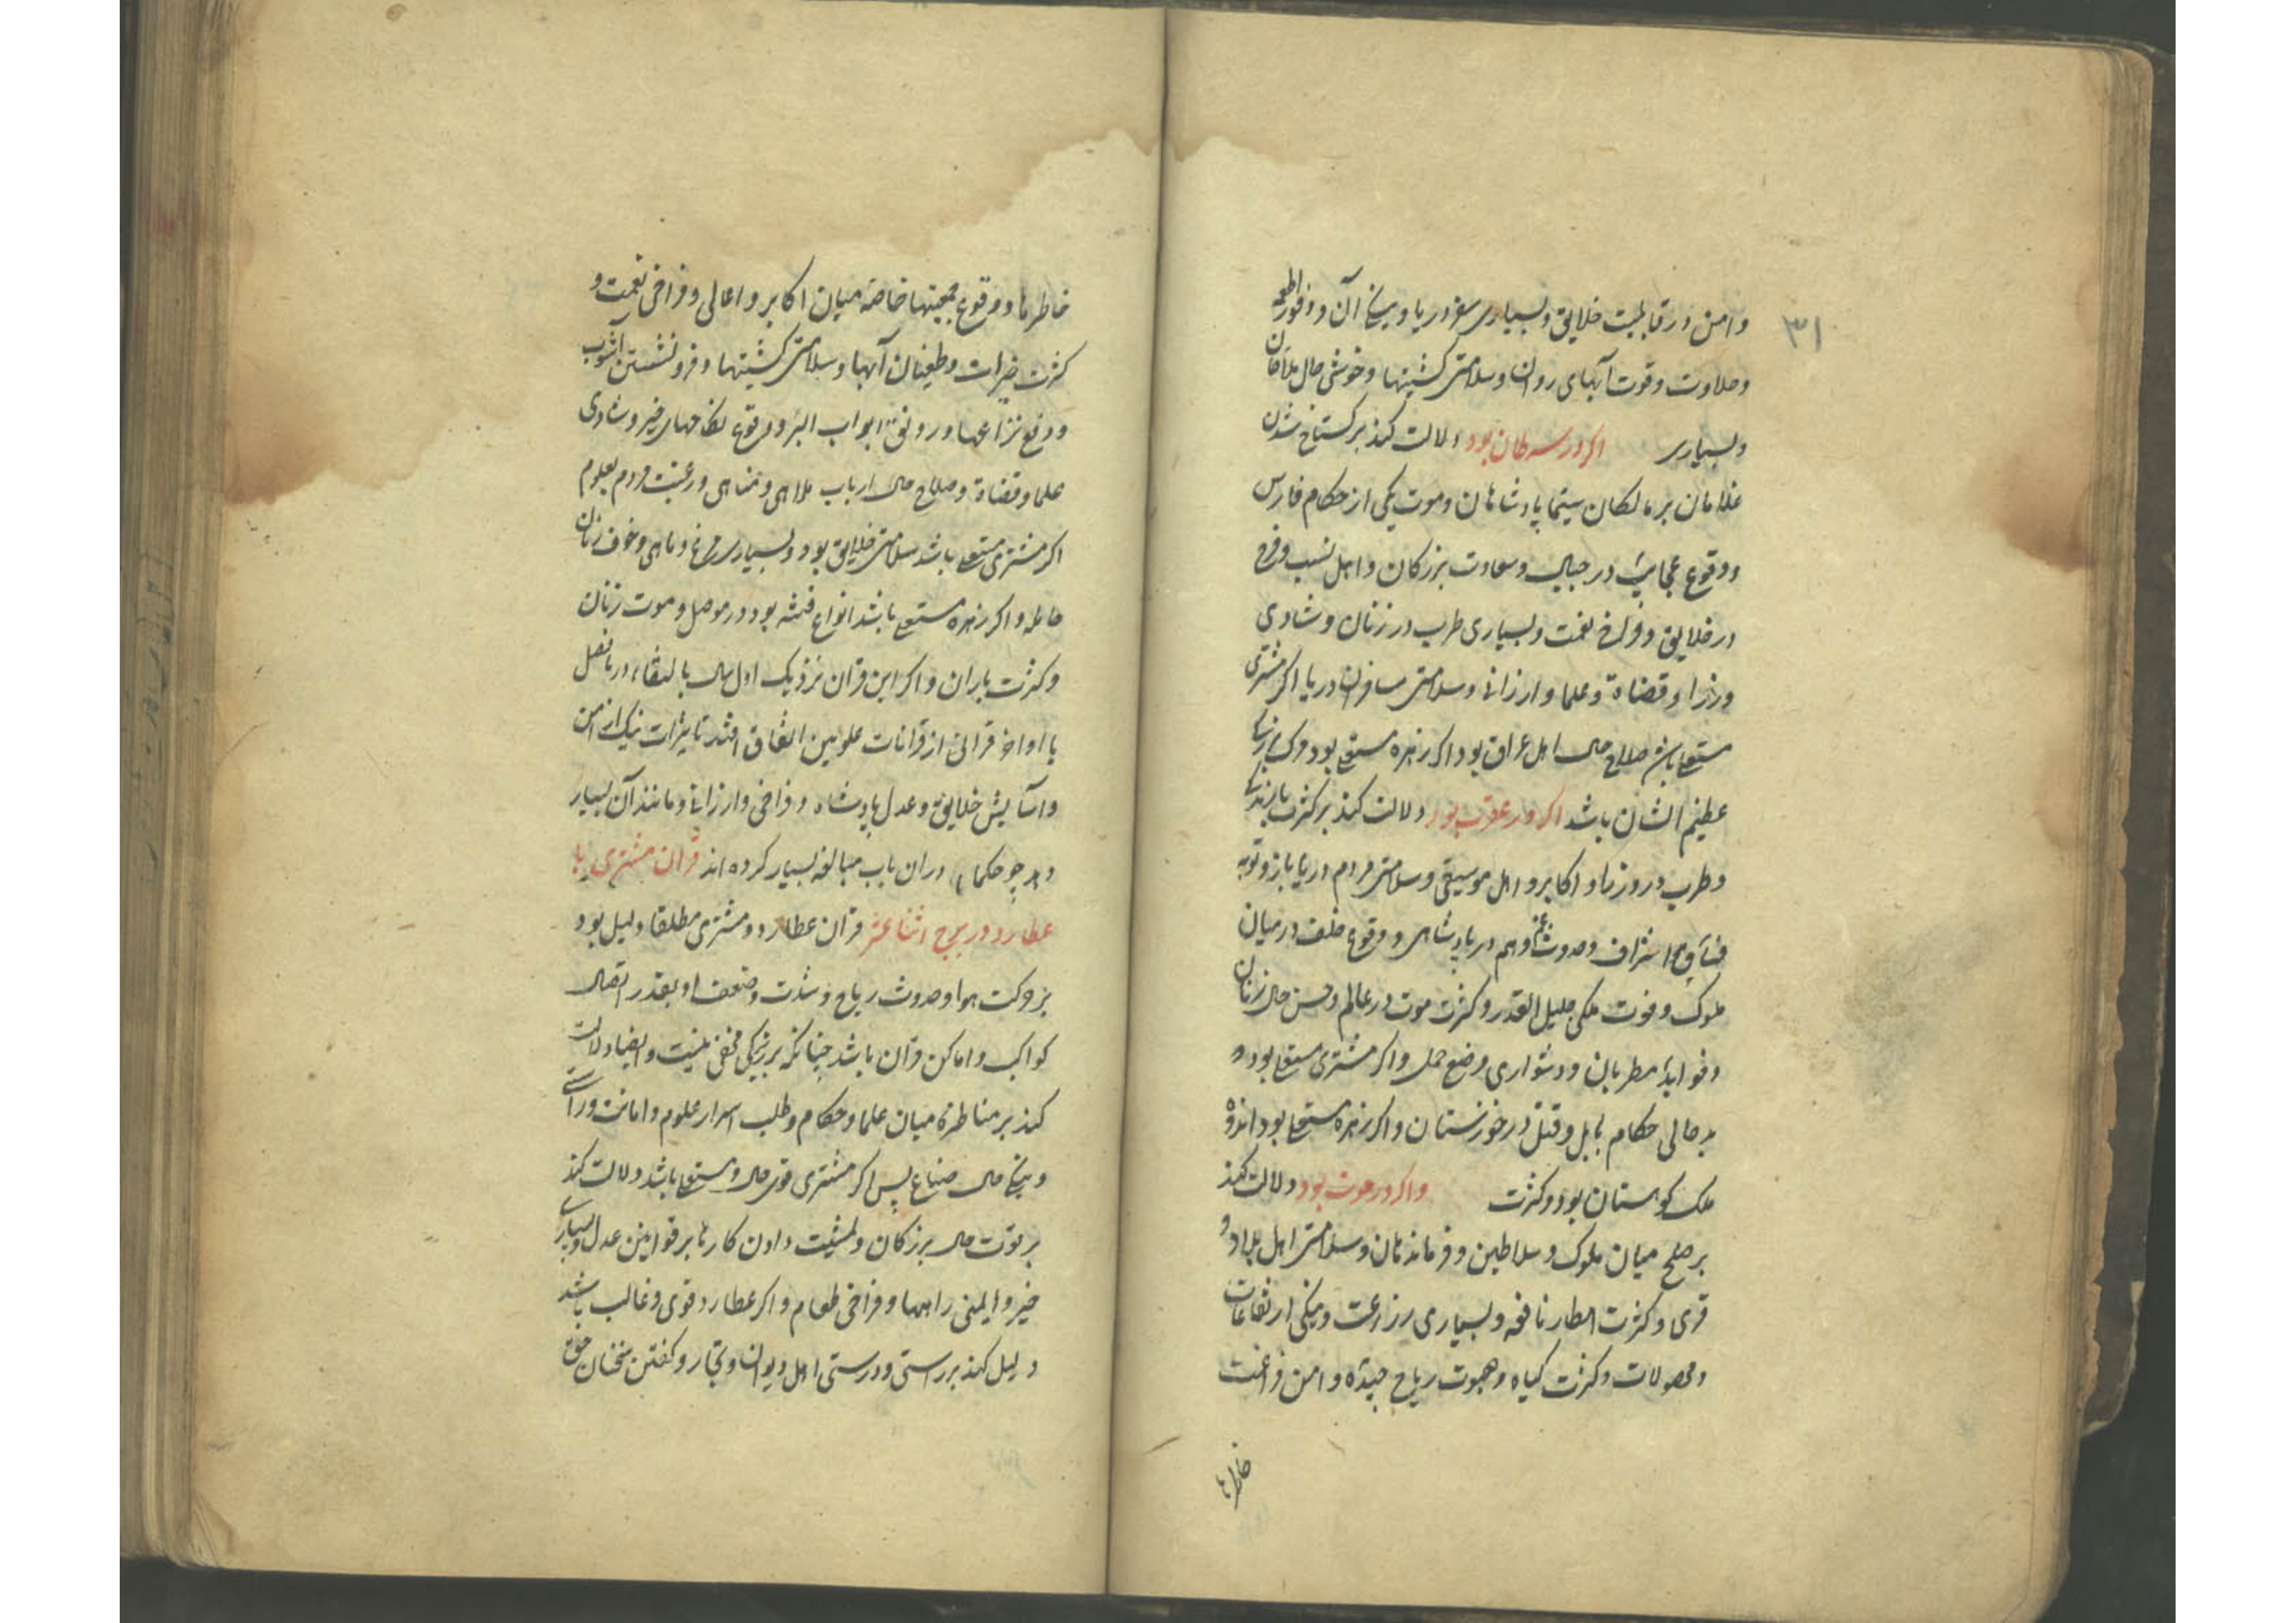 ۳۱
و امن در قابلیت خلایق و بسیاری سفر دریا و میانج آن و وفور اطعمه
و حلاوت و قوت آبهای روان و سلامتی کشتیها و خوشی حال ملاحان
و بسیاری اگر در سرطان بود دلالت کند بر گستاخ شدن
غلامان بر مالکان سیما پادشاهان و موت یکی از حکام فارس
و وقوع عجایب در جبال و سعادت بزرگان و اهل نسب و فرح
در خلایق و فراخ نعمت و بسیاری طرب در زنان و شادی
وزرا و قضاة و علما و ارزانی و سلامتی مسافران دریا اگر مشتری
مستعلی باشد صلاح حال اهل عراق بود اگر زهره مستعلی بود
عظیم الشان باشد اگر در عقرب بود دلالت کند بر کثرت
و طرب در وزرا و اکابر و اهل موسیقی و سلامتی مردم دریا بار و توبه
اشراف و حدوث غم و هم در پادشاهی و وقوع خلف در میان
ملوک و فوت ملکی جلیل القدر و کثرت موت در عالم و حسن حال زنان
و فواید مطربان و دشواری وضع حمل و اگر مشتری مستعلی بود
بدحالی حکام بابل و قتل در خوزستان و اگر زهره مستعلی بود اندوه
ملک کوهستان بود و کثرت و اگر در حوت بود دلالت کند
بر صلح میان ملوک و سلاطین و فرماندهان و سلامتی اهل بلاد و
قری و کثرت امطار نافعه و بسیاری زراعت و نیکی ارتفاعات
و محصولات و کثرت گیاه و هبوب ریاح جیده و امن و راغبت
خاطرها
خاطرها و وقوع محبتها خاصه میان اکابر و اعالی و فراخی نعمت و
کثرت خیرات و طغیان آبها و سلامتی کشتیها و فرو نشستن آشوب
و رفع نزاعها و رونق ابواب البر و وقوع نکاحهای خیر و شادی
علما و قضاة و صلاح حال ارباب ملاهی و مناهی و رغبت مردم بعلوم
اگر مشتری مستعلی باشد سلامتی خلایق بود و بسیاری مرغ و ماهی و خوف زنان
حامله و اگر زهره مستعلی باشد انواع فتنه بود در موصل و موت زنان
و کثرت باران و اگر این قران نزدیک اول سال یا التقاء در با فصل
یا اواخر قرانی از قرانات علویین اتفاق افتد تاثیرات نیک از امن
و آسایش خلایق و عدل پادشاه و فراخی و ارزانی و مانند آن بسیار
حکما دران باب مبالغه بسیار کرده اند قران مشتری با
عطارد در بروج اثنا عشر قران عطارد و مشتری مطلقا دلیل بود
بر حرکت هوا و حدوث ریاح و شدت و ضعف او بقدر اتصال
کواکب و اماکن قران باشد چنانکه بر زیرکی مخفی نیست و ایضا دلالت
کند بر مناظره میان علما و حکام و طلب اسرار علوم و امانت و راستی
و نیکی حال صناع پس اگر مشتری قوی حال و مستعلی باشد دلالت کند
بر قوت حال بزرگان و تمشیت دادن کارها بر قوانین عدل و بسیاری
خیر و ایمنی راهها و فراخی طعام و اگر عطارد قوی و غالب باشد
دلیل کند بر راستی و درستی اهل دیوان و تجار و گفتن سخنان حق